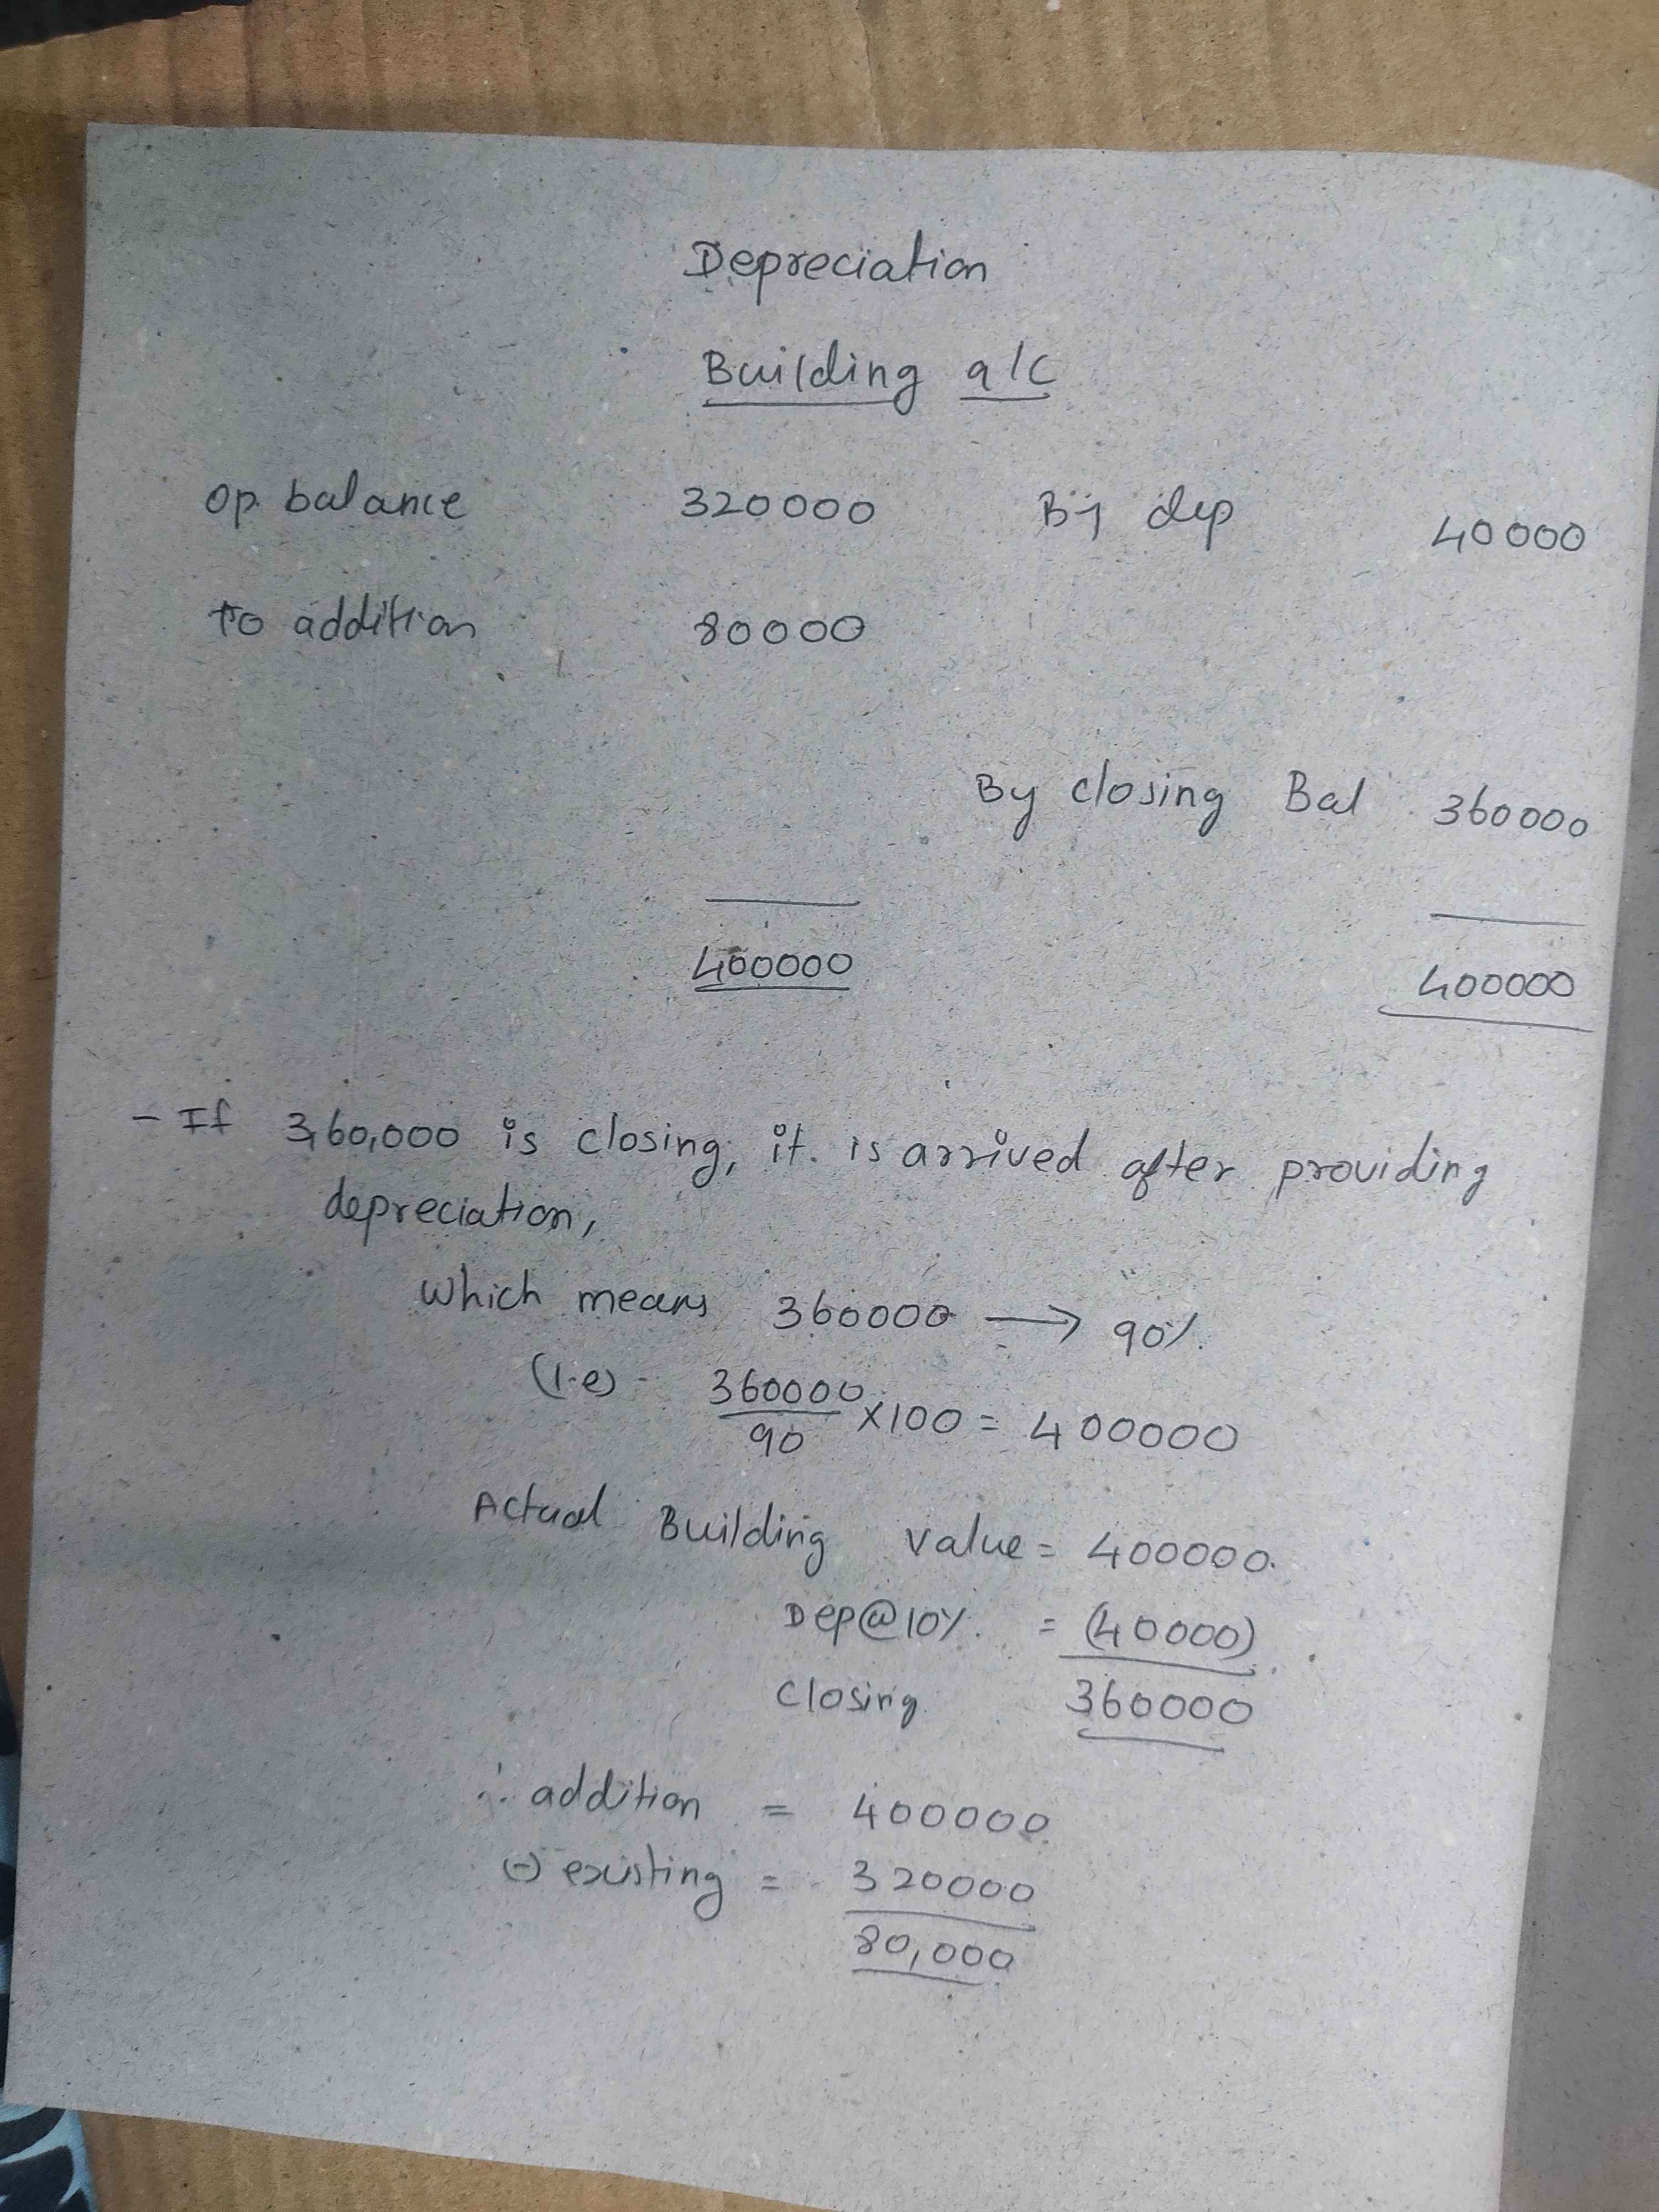 Depreciation
Building a/c
Op. balance 320000 By dep 40000
To addition 80000
By closing Bal 360000
400000 400000
- If 3,60,000 is closing, it is arrived after providing
depreciation,
Which means 360000 → 90%.
(i.e) - 360000/90 x100 = 400000
Actual Building value = 400000.
Dep@10%. = (40000)
Closing 360000
∴ addition = 400000
(-) existing = 320000
80,000